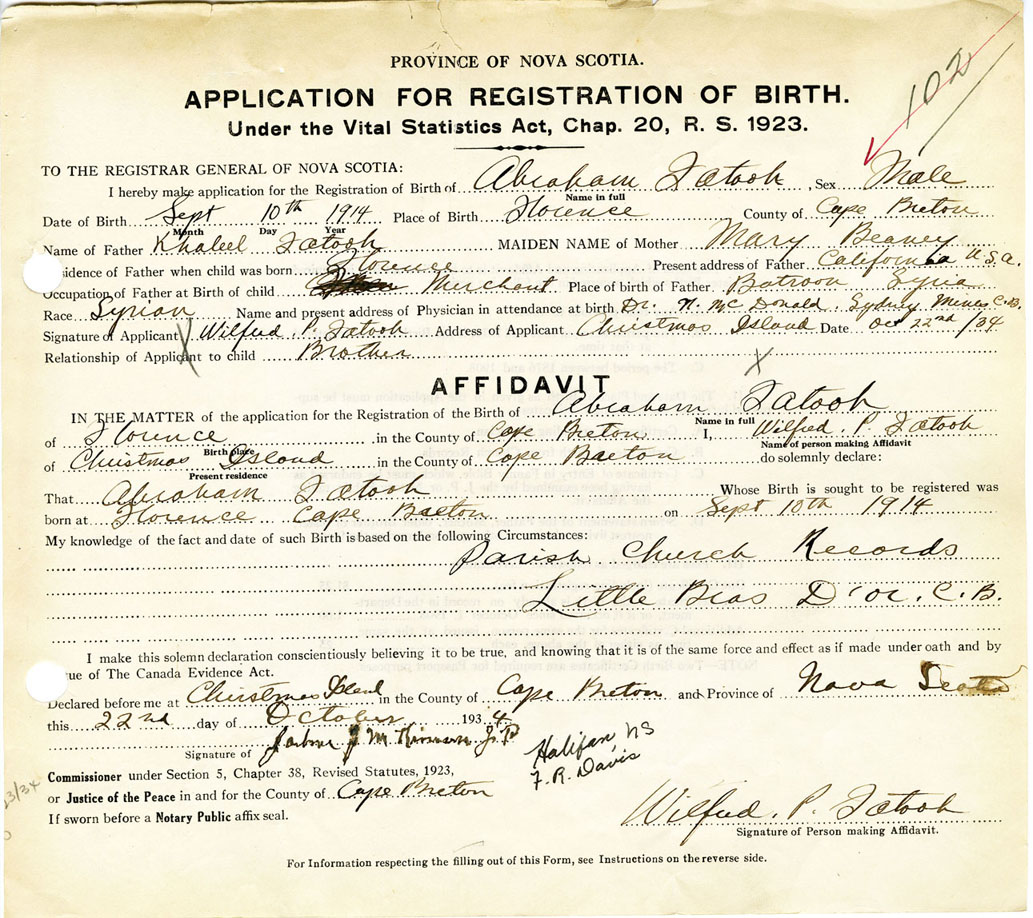 PROVINCE OF NOVA SCOTIA.
APPLICATION FOR REGISTRATION OF BIRTH.
Under the Vital Statistics Act, Chap. 20, R. S. 1923.
102
TO THE REGISTRAR GENERAL OF NOVA SCOTIA:
I hereby make application for the Registration of Birth of Abraham Tatooh, Sex Male
Name in full
Date of Birth Sept 10th 1914 Place of Birth Florence County of Cape Breton
Month Day Year
Name of Father Khaleel Tatooh MAIDEN NAME of Mother Mary Beaney
esidence of Father when child was born Florence Present address of Father California U.S.A.
Occupation of Father at Birth of child Merchant Place of birth of Father Batroon Syria
Race Syrian Name and present address of Physician in attendance at birth Dr. McDonald Sydney Mines C.B.
Signature of Applicant X Wilfred P. Tatooh Address of Applicant Christmas Island Date Oct 22nd /34
Relationship of Applicant to child Brother X
AFFIDAVIT
IN THE MATTER of the application for the Registration of the Birth of Abraham Tatooh
Name in full
of Florence in the County of Cape Breton I, Wilfred. P. Tatooh
Birth place Name of person making Affidavit
of Christmas Island in the County of Cape Breton do solemnly declare:
Present residence
That Abraham Tatooh Whose Birth is sought to be registered was
born at Florence Cape Breton on Sept 10th 1914
My knowledge of the fact and date of such Birth is based on the following Circumstances:
Parish Church Records
Little Bras D'or. C.B.
I make this solemn declaration conscientiously believing it to be true, and knowing that it is of the same force and effect as if made under oath and by
ue of The Canada Evidence Act.
Declared before me at Christmas Island in the County of Cape Breton and Province of Nova Scotia
this 22nd day of October 1934
J. P.
Signature of
Halifax, NS
F. R. Davis
Commissioner under Section 5, Chapter 38, Revised Statutes, 1923,
or Justice of the Peace in and for the County of Cape Breton
If sworn before a Notary Public affix seal.
Wilfred. P. Tatooh
Signature of Person making Affidavit.
For Information respecting the filling out of this Form, see Instructions on the reverse side.